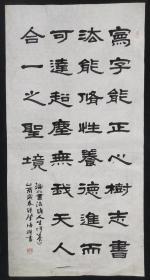 寫字能正心樹志書
法能脩性養德進而
可達超塵無我天人
合一之聖境